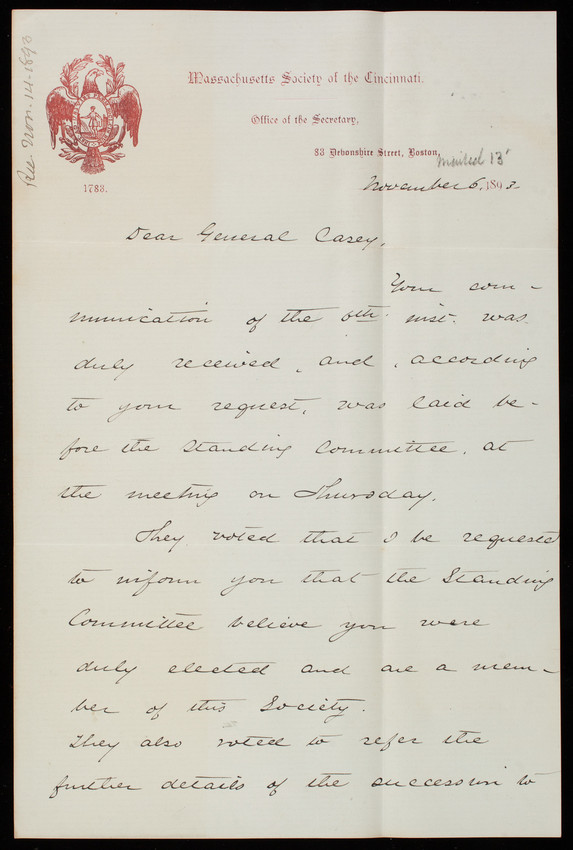 Rec. Nov. 14. 1893
Massachusetts Society of the Cincinnati.
Office of the Secretary,
83 Devonshire Street, Boston,
mailed 13'
1783.
November 6, 1893
Dear General Casey,
Your com-
munication of the 6th. inst. was
duly received, and, according
to your request, was laid be-
fore the Standing Committee, at
the meeting on Thursday.
They voted that I be requested
to inform you that the Standing
Committee believe you were
duly elected and are a mem-
ber of this Society.
They also voted to refer the
further details of the succession to